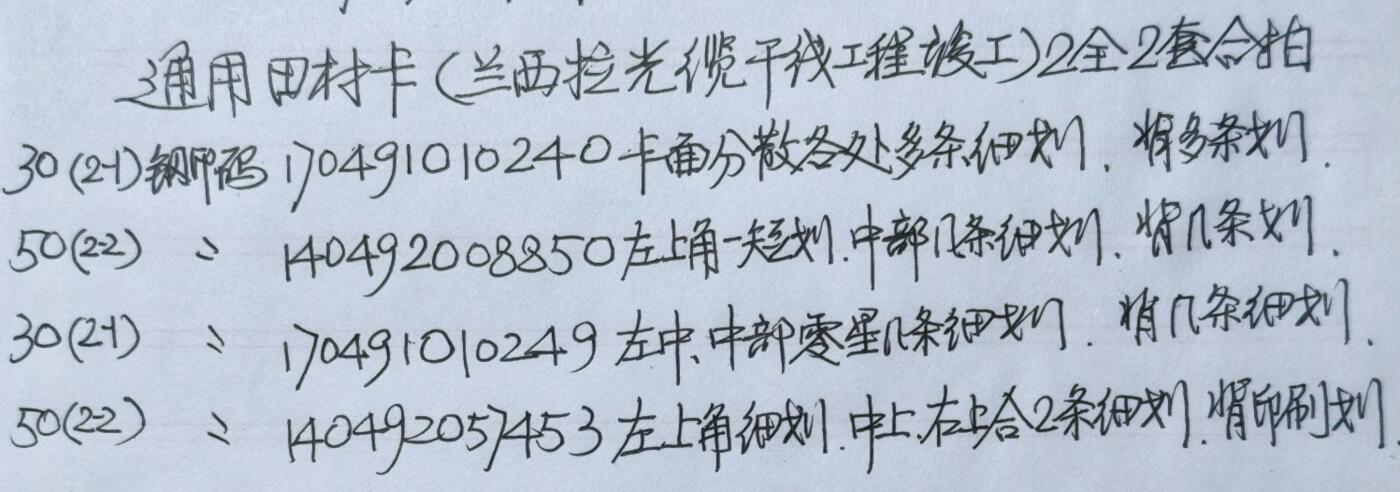 通用田村卡(兰西拉光缆干线工程竣工)2全2套合拍
30(2-1)钢印码170491010240卡面分散各处多条细划.背多条划.
50(2-2) 〃 140492008850左上角一短划.中部几条细划.背几条划.
30(2-1) 〃 170491010249左中、中部零星几条细划.背几条细划.
50(2-2) 〃 140492057453左上角细划.中上.右上各2条细划.背印刷划.